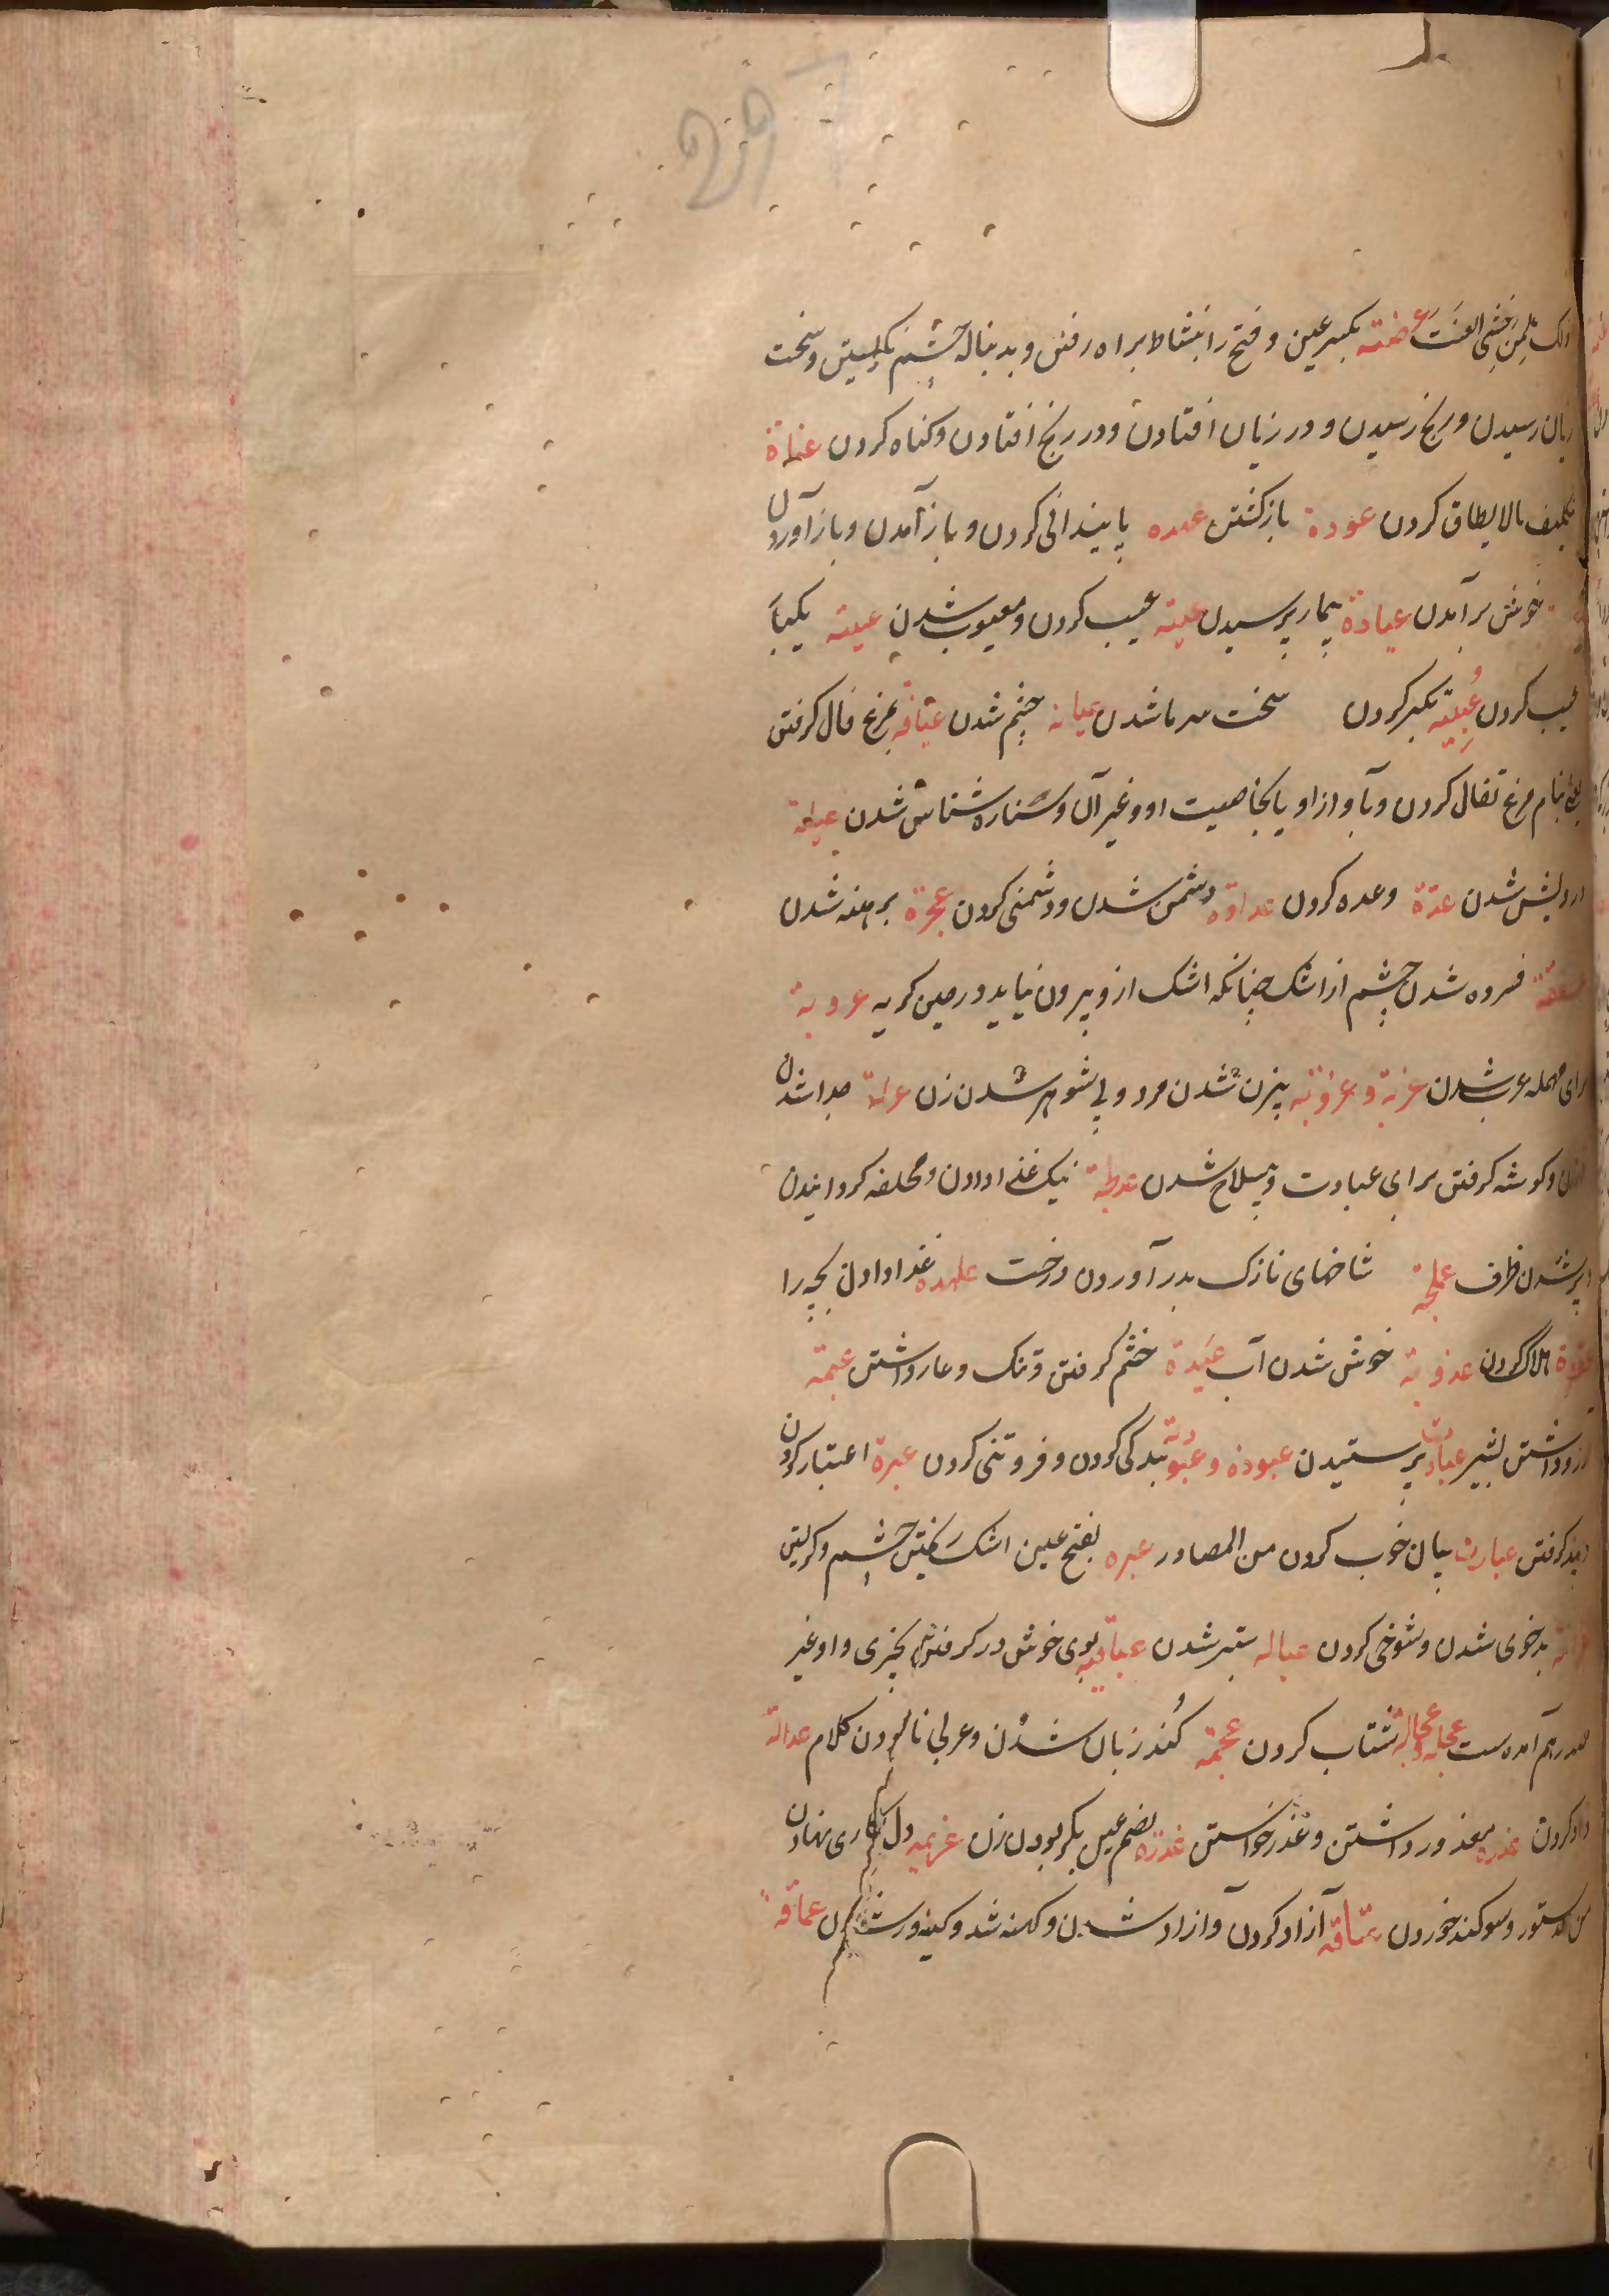 لمن خشی العنت عرضنته بکسر عین و فتح را بنشاط براه رفتن و بدنباله چشم نکریستن و سخت
زیان رسیدن و رنج رسیدن و در زیان افتادن و در رنج افتادن و کناه کردن عناة
تکلیف مالا یطاق کردن عودة بازکشتن عهده پایندانی کردن و باز آمدن و باز آوردن
خوش برآمدن عیادة بیمار پرسیدن عیبة عیب کردن و معیوب شدن عیبة یکبار
عیب کردن عُبِیّة تکبر کردن سخت سرما شدن عیانة چشم شدن عیافة بمرغ فال کرفتن
یعنی بنام مرغ تفال کردن و بآواز او یا بخاصیت او و غیر آن و ستاره شناس شدن عیلة
درویش شدن عدة وعده کردن عداوة دشمن شدن و دشمنی کردن عجرة برهنه شدن
فسرده شدن چشم از اشک چنانکه اشک ازو بیرون نیاید در حین کریه عروبة
برای مهمله عرب شدن عزبة و عزوبة بیزن شدن مرد و بی شوهر شدن زن عزلة جدا شدن
و کوشه کرفتن برای عبادت و بیسلاح شدن نیک غذا دادن و محلفه کردانیدن
پر شدن ظرف عملجة شاخهای نازک بدر آوردن درخت علهده غذا دادن بچه را
هلاک کردن عذوبة خوش شدن آب عَبَدة خشم کرفتن و ننک و عار داشتن عیمة
آرزو داشتن بشیر عبادت پرستیدن عبودة و عبودیة بندکی کردن و فروتنی کردن عبرة اعتبار کردن
و پند کرفتن عبارت بیان خوب کردن من المصادر عبره بفتح عین اشک ریختن چشم و کریستن
بدخوی شدن و شوخی کردن عباله ستبر شدن عباقیه بوی خوش در کرفتن بچیزی و او غیر
مصدر هم آمده ست عجله و عجالة شتاب کردن عجمة کُند زبان شدن و عربی نابودن کلام عدالة
داد کردن عذره معذور داشتن و عذر خواستن عذرة بضم عین بکر بودن زن عزیمه دل بکاری نهادن
دستور و سوکند خوردن عتاقه آزاد کردن و آزاد شدن و کهنه شد و کینه ور شدن عماقه